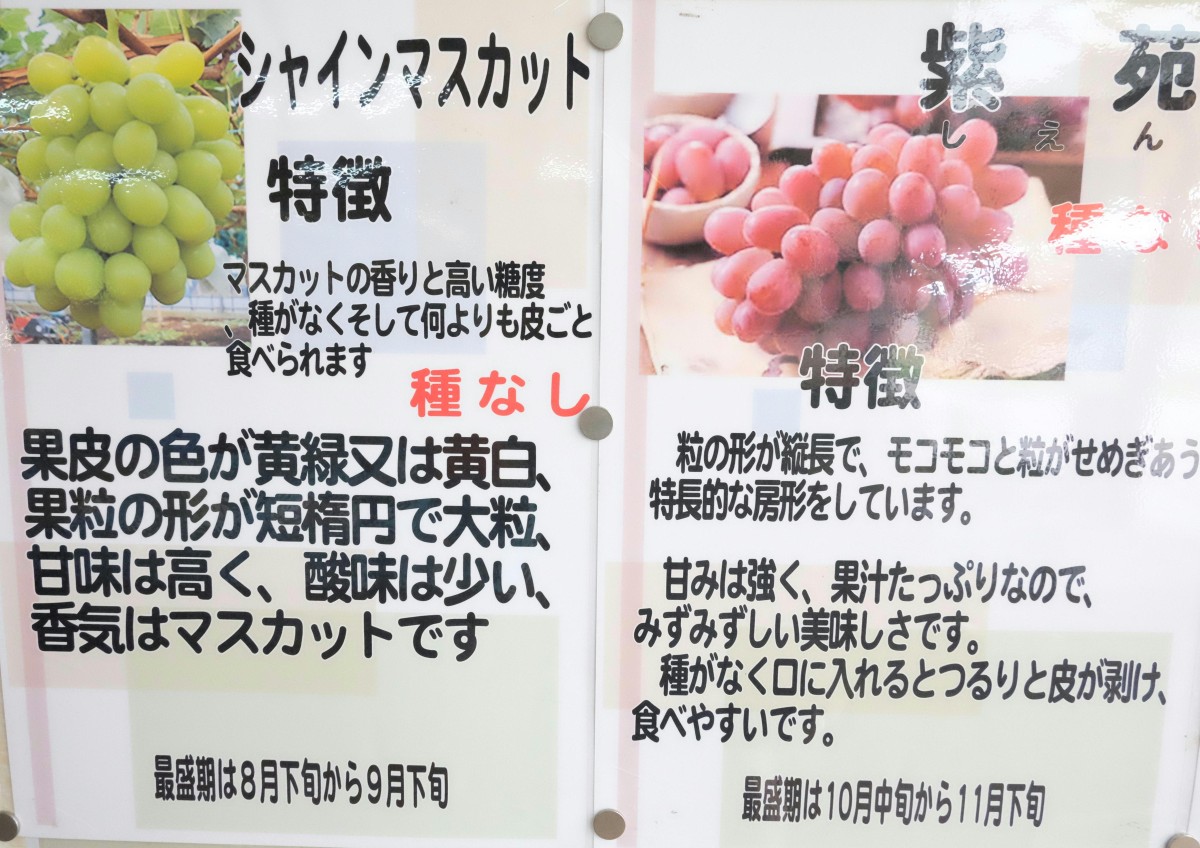 シャインマスカット
特徴
マスカットの香りと高い糖度
、種がなくそして何よりも皮ごと
食べられます
種なし
果皮の色が黄緑又は黄白、
果粒の形が短楕円で大粒、
甘味は高く、酸味は少い、
香気はマスカットです
最盛期は8月下旬から9月下旬
紫苑
しえん
種な
特徴
粒の形が縦長で、モコモコと粒がせめぎあう
特長的な房形をしています。
甘みは強く、果汁たっぷりなので、
みずみずしい美味しさです。
種がなく口に入れるとつるりと皮が剥け、
食べやすいです。
最盛期は10月中旬から11月下旬